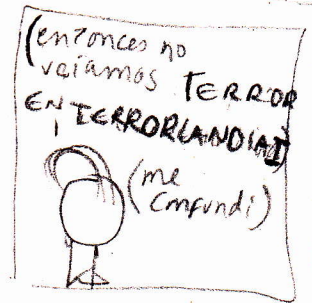 (entonces no
veíamos TERROR
EN TERRORLANDIA)
(me
confundí)